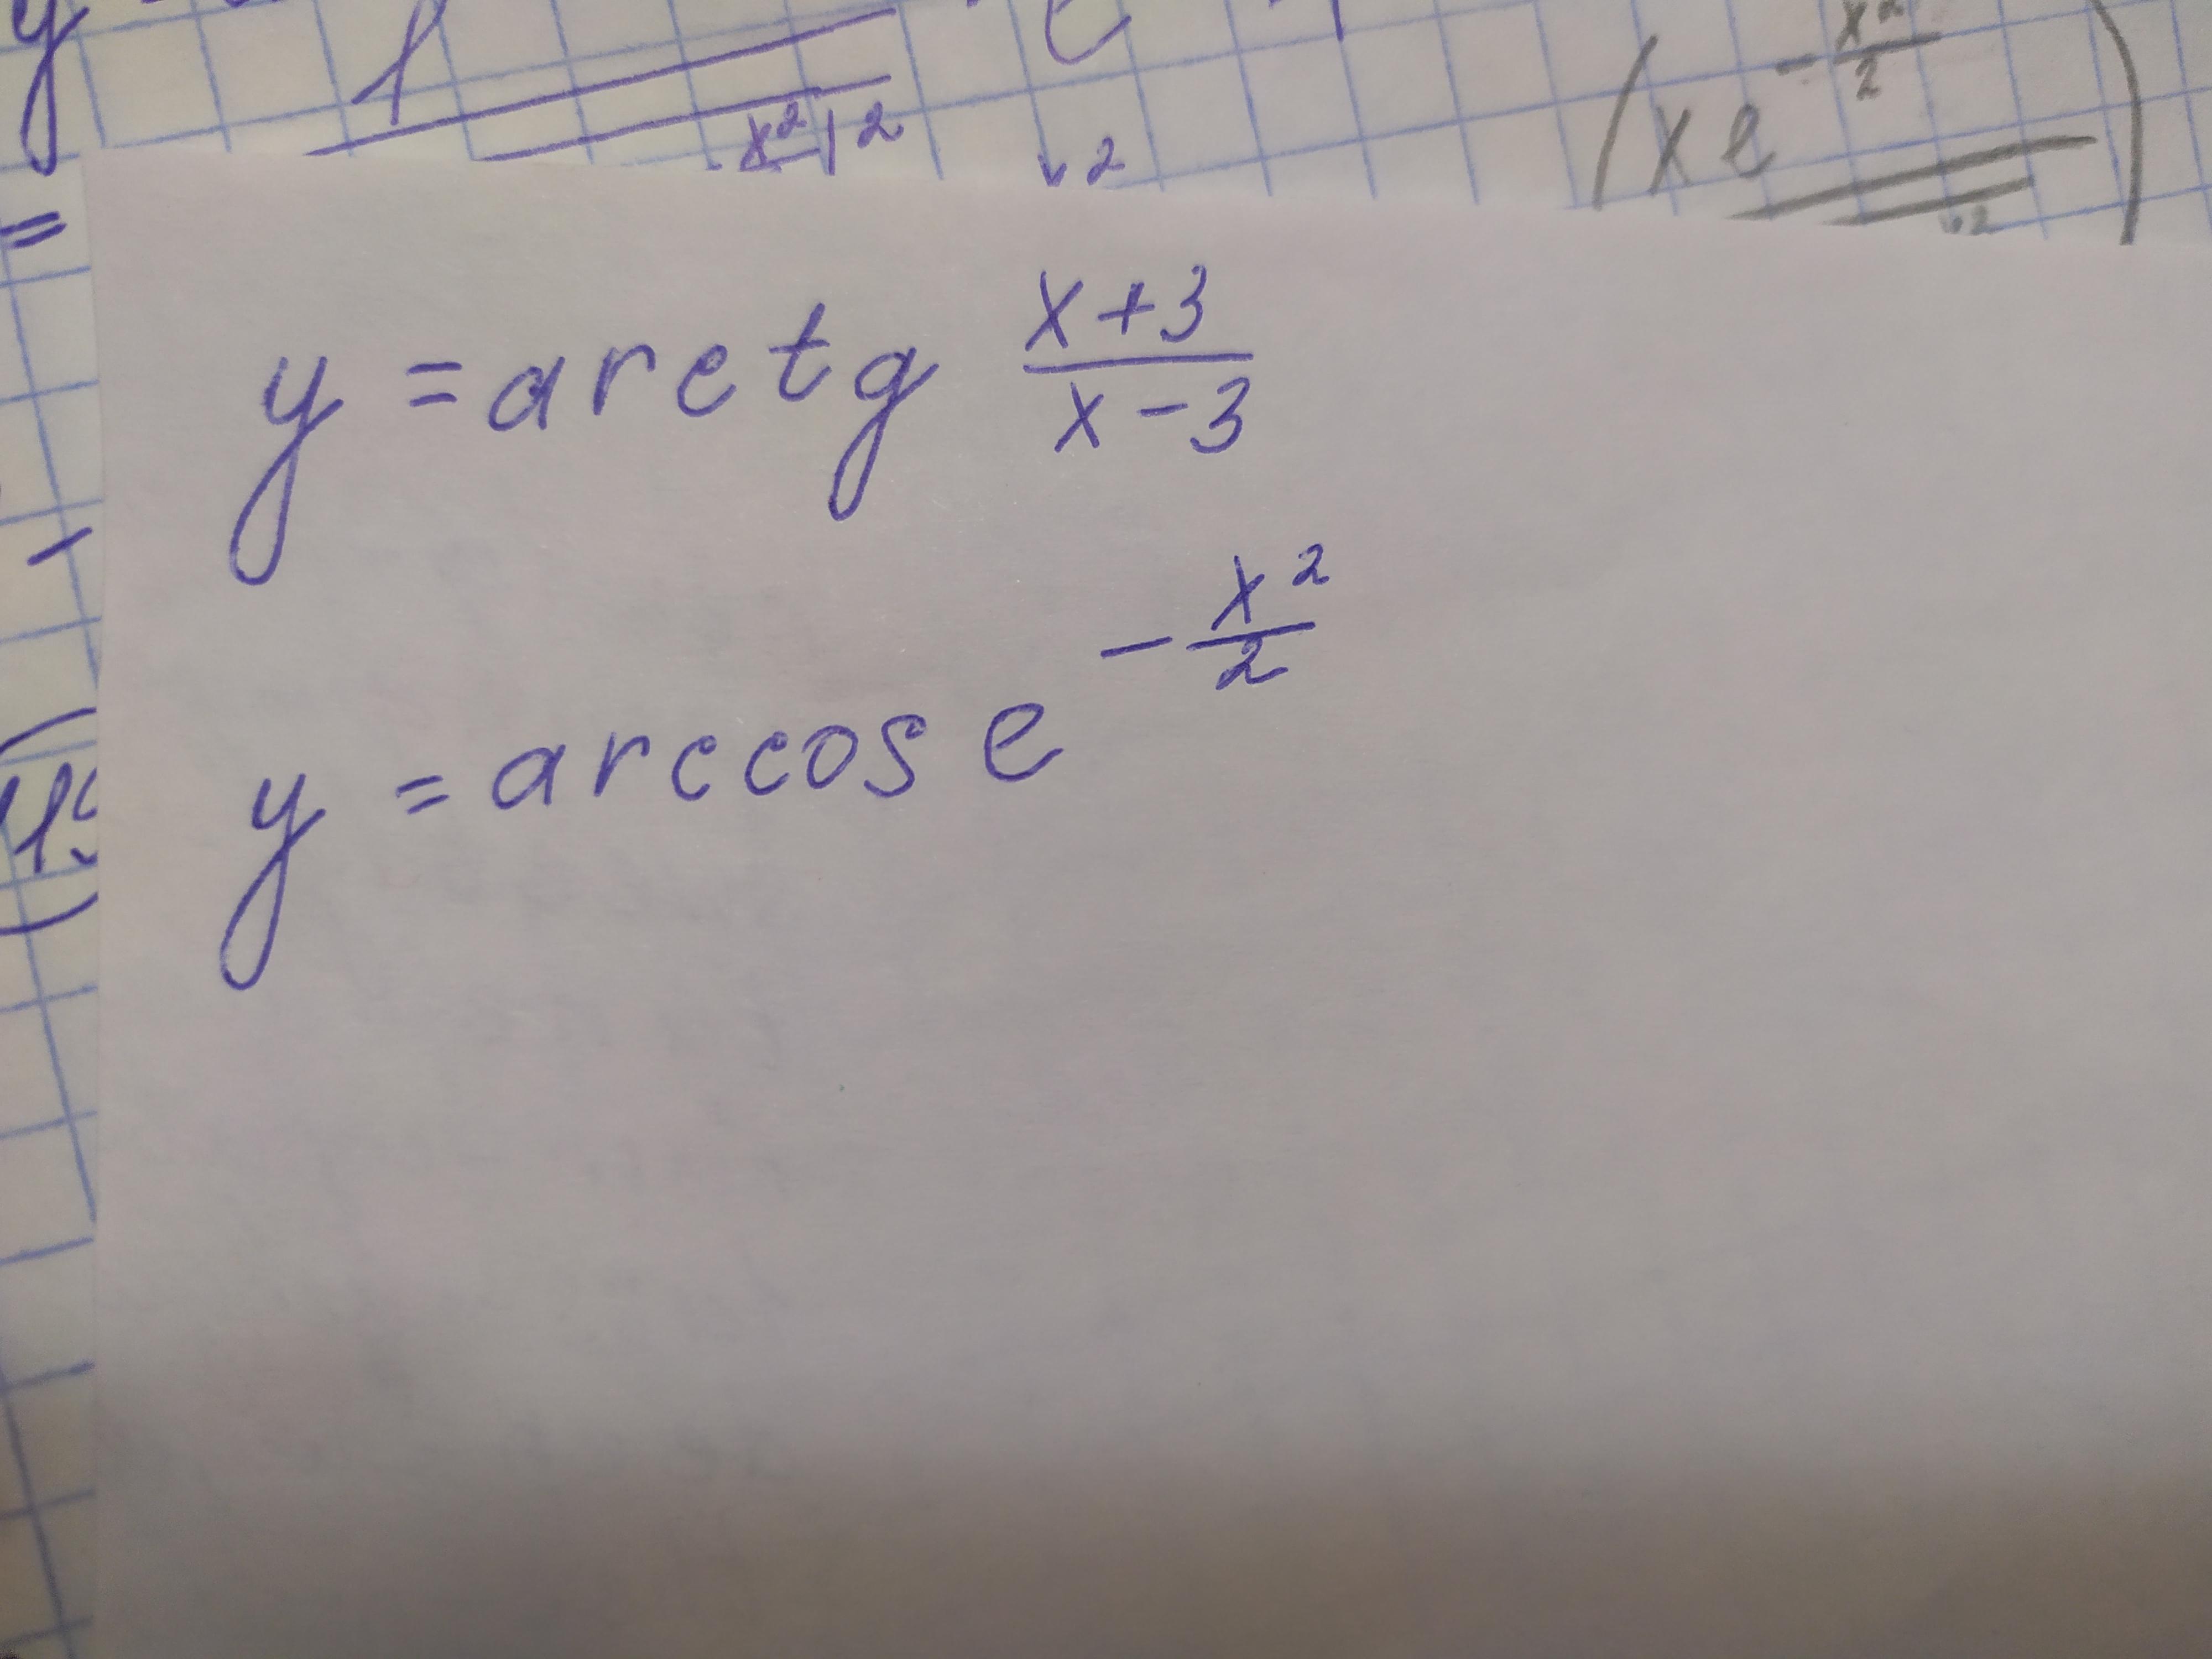 y
x² 2
2
(x e^{-x²/2})
=
y = arctg (x+3)/(x-3)
-
y = arccos e^{-x²/2}